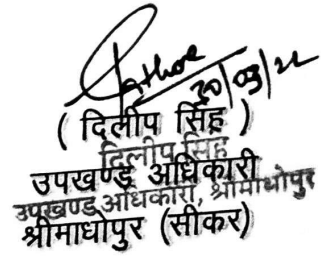 Rathore
30/09/22
( दिलीप सिंह )
दिलीप सिंह
उपखण्ड अधिकारी
उपखण्ड अधिकारी, श्रीमाधोपुर
श्रीमाधोपुर (सीकर)